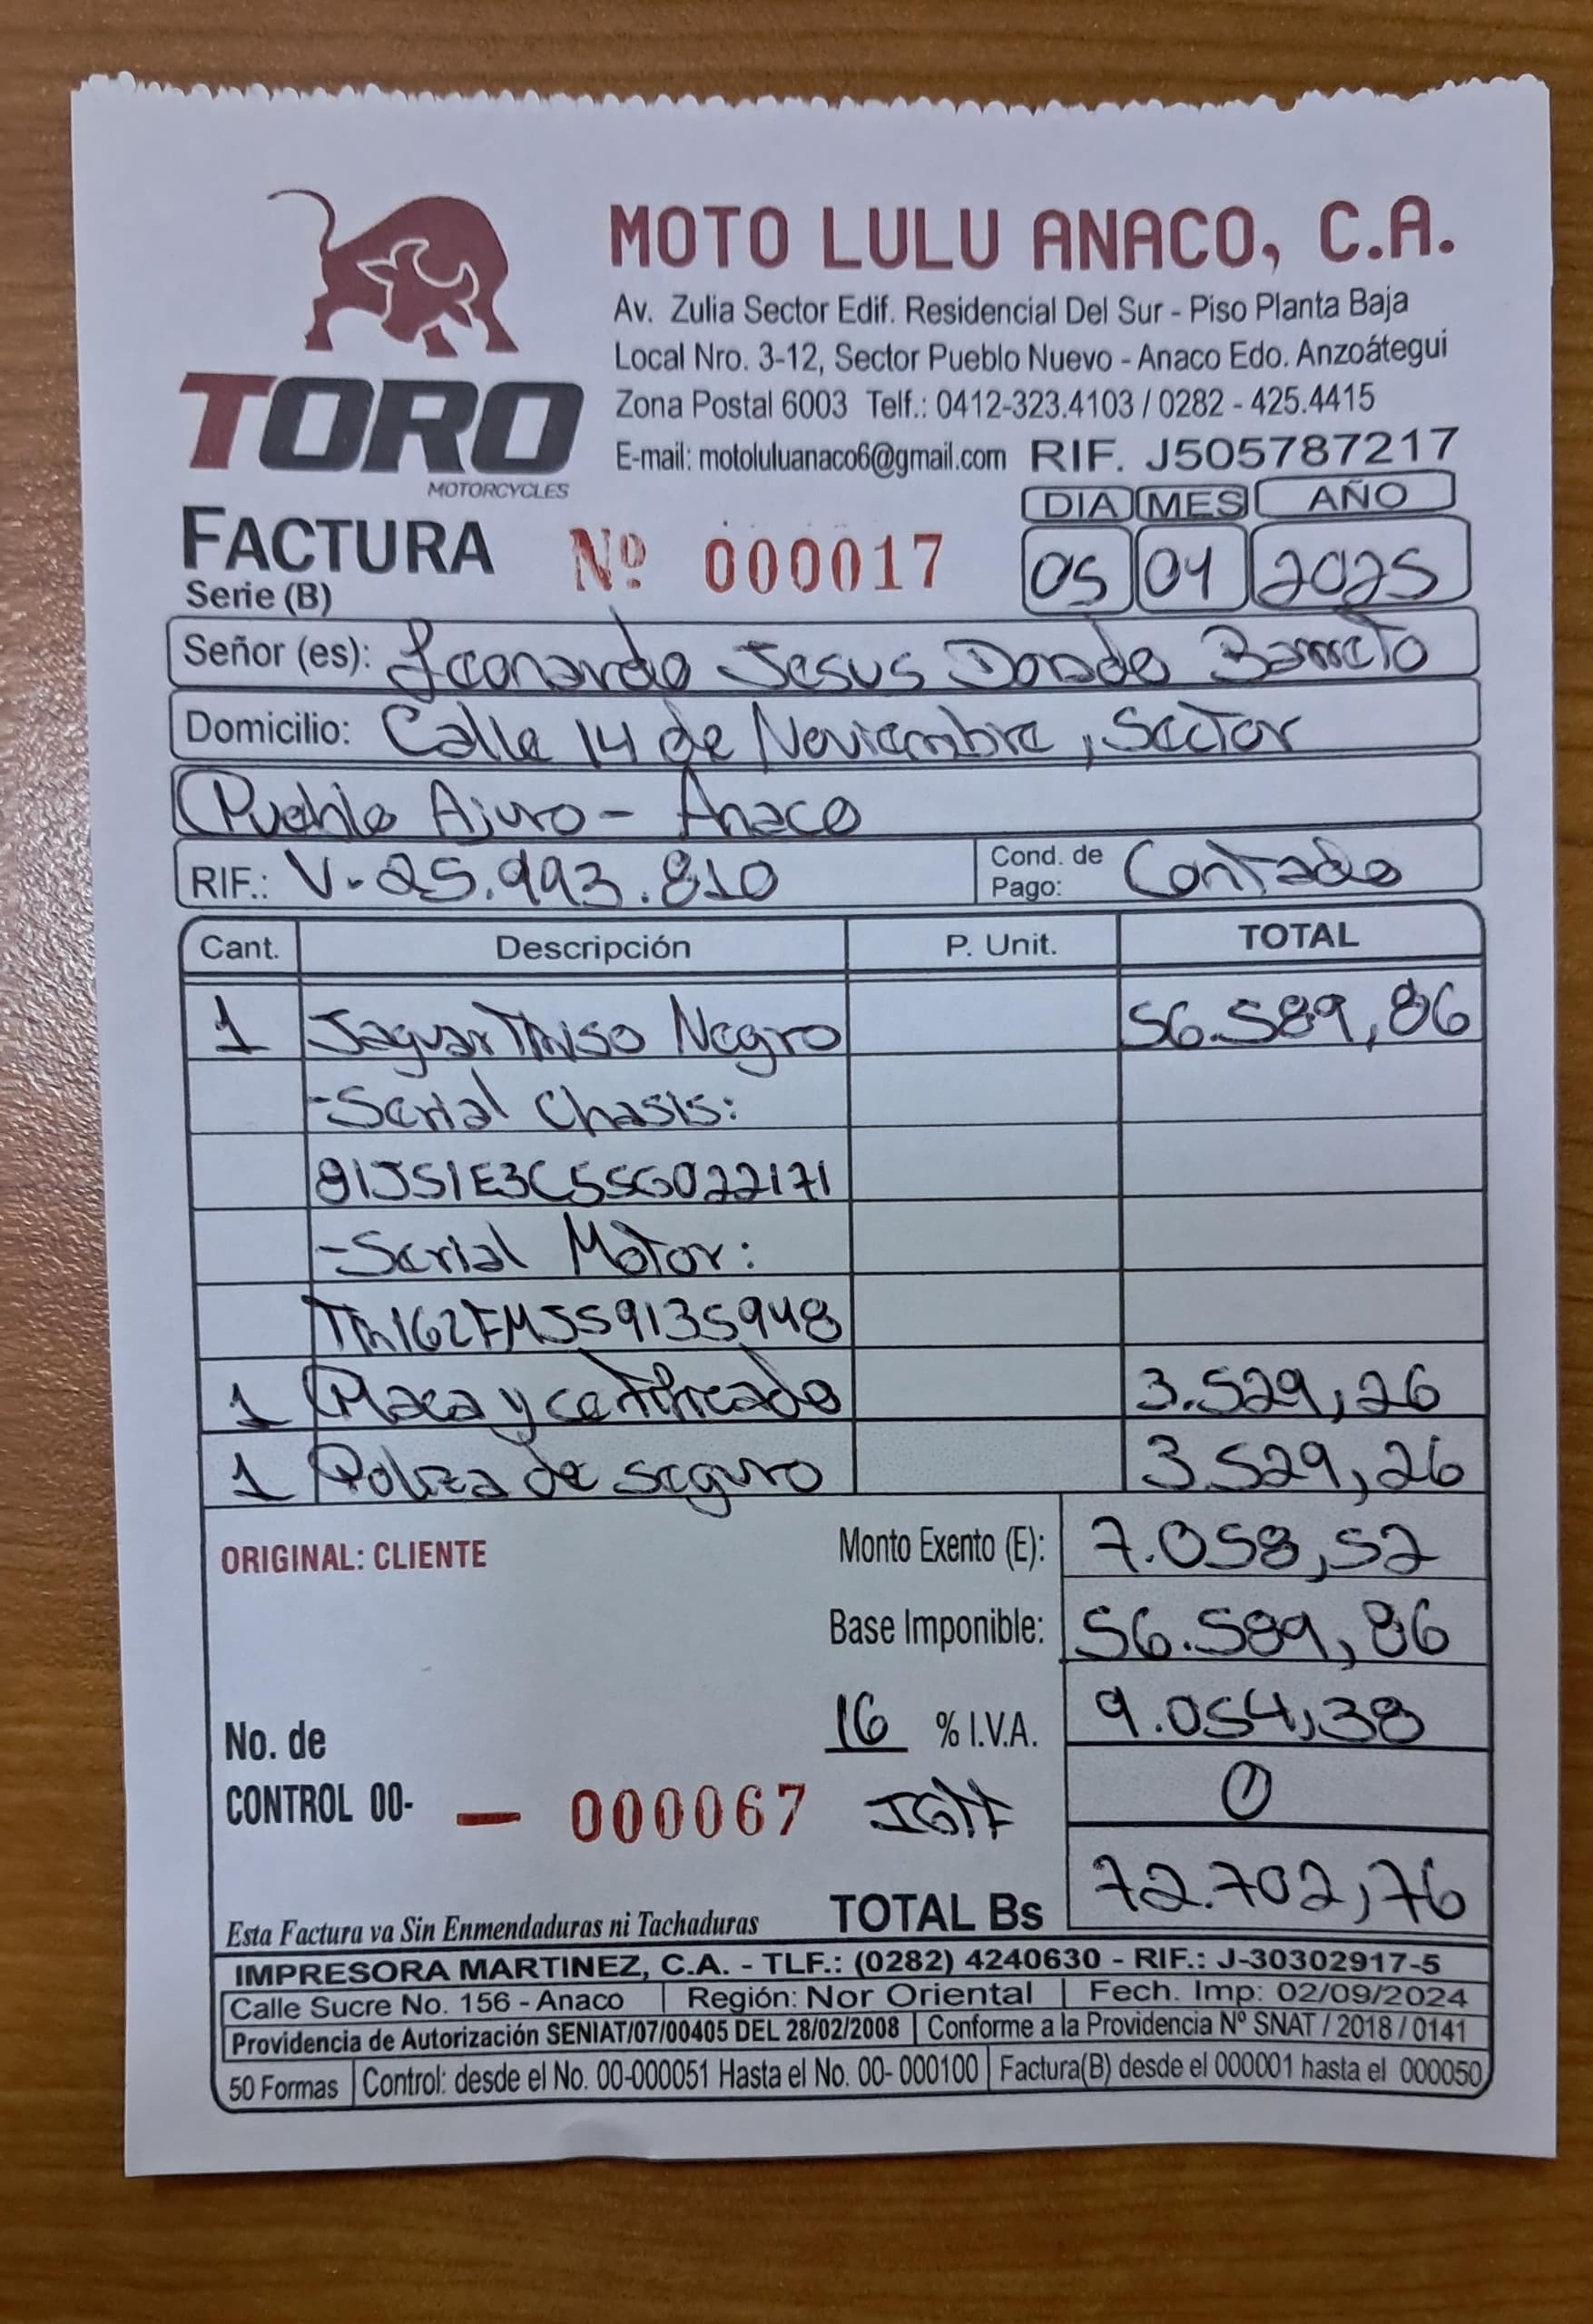 MOTO LULU ANACO, C.A.
Av. Zulia Sector Edif. Residencial Del Sur - Piso Planta Baja
Local Nro. 3-12, Sector Pueblo Nuevo - Anaco Edo. Anzoátegui
Zona Postal 6003 Telf.: 0412-323.4103 / 0282 - 425.4415
E-mail: motoluluanaco6@gmail.com RIF. J505787217
TORO
MOTORCYCLES
DIA MES AÑO
FACTURA Nº 000017 05 04 2025
Serie (B)
Señor (es): Leonardo Jesus Donado Barreto
Domicilio: Calle 14 de Noviembre, Sector
Pueblo Ajuro - Anaco
RIF.: V-25.993.810 Cond. de Pago: Contado
Cant. Descripción P. Unit. TOTAL
1 Jaguar TM150 Negro 56.589,86
-Serial Chasis:
81JS1E3C5SG022171
-Serial Motor:
TM162FMJS9135948
1 Placa y certificado 3.529,26
1 Poliza de seguro 3.529,26
ORIGINAL: CLIENTE Monto Exento (E): 7.058,52
Base Imponible: 56.589,86
16 % I.V.A. 9.054,38
No. de
CONTROL 00- — 000067 IGTF 0
Esta Factura va Sin Enmendaduras ni Tachaduras TOTAL Bs 72.702,76
IMPRESORA MARTINEZ, C.A. - TLF.: (0282) 4240630 - RIF.: J-30302917-5
Calle Sucre No. 156 - Anaco Región: Nor Oriental Fech. Imp: 02/09/2024
Providencia de Autorización SENIAT/07/00405 DEL 28/02/2008 Conforme a la Providencia Nº SNAT / 2018 / 0141
50 Formas Control: desde el No. 00-000051 Hasta el No. 00- 000100 Factura(B) desde el 000001 hasta el 000050